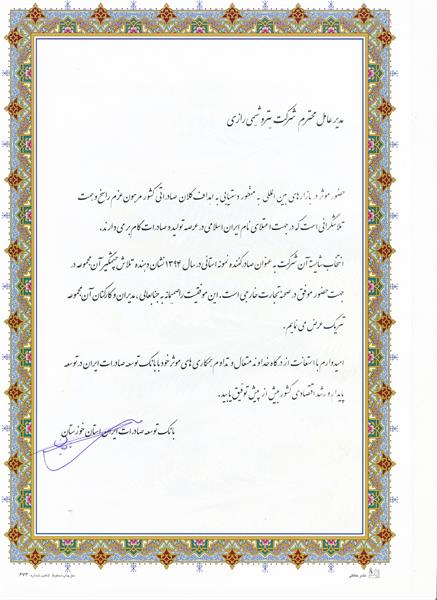 مدیر عامل محترم شرکت پتروشیمی رازی
حضور موثر در بازارهای بین المللی به منظور دستیابی به اهداف کلان صادراتی کشور مرهون عزم راسخ و همت
تلاشگرانی است که در جهت اعتلای نام ایران اسلامی در عرصه تولید و صادرات گام بر می دارند.
انتخاب شایسته آن شرکت به عنوان صادرکننده نمونه استانی در سال ۱۳۹۴ نشان دهنده تلاش چشمگیر آن مجموعه در
جهت حضور موفق در صحنه تجارت خارجی است. این موفقیت را صمیمانه به جنابعالی، مدیران و کارکنان آن مجموعه
تبریک عرض می نمایم.
امیدوارم با استعانت از درگاه خداوند متعال و تداوم همکاری های موثر خود با بانک توسعه صادرات ایران در توسعه
پایدار و رشد اقتصادی کشور بیش از پیش توفیق یابید.
بانک توسعه صادرات ایران استان خوزستان